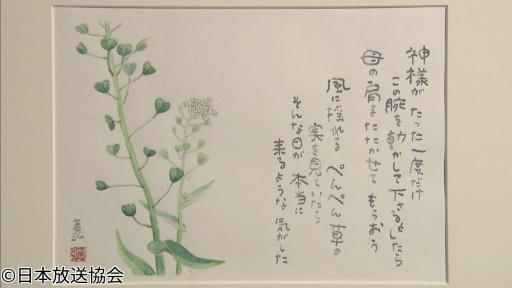 神様がたった一度だけ
この腕を動かして下さるとしたら
母の肩をたたかせてもらおう
風に揺れるぺんぺん草の
実を見ていたら
そんな日が本当に
来るような気がした
富弘
©日本放送協会